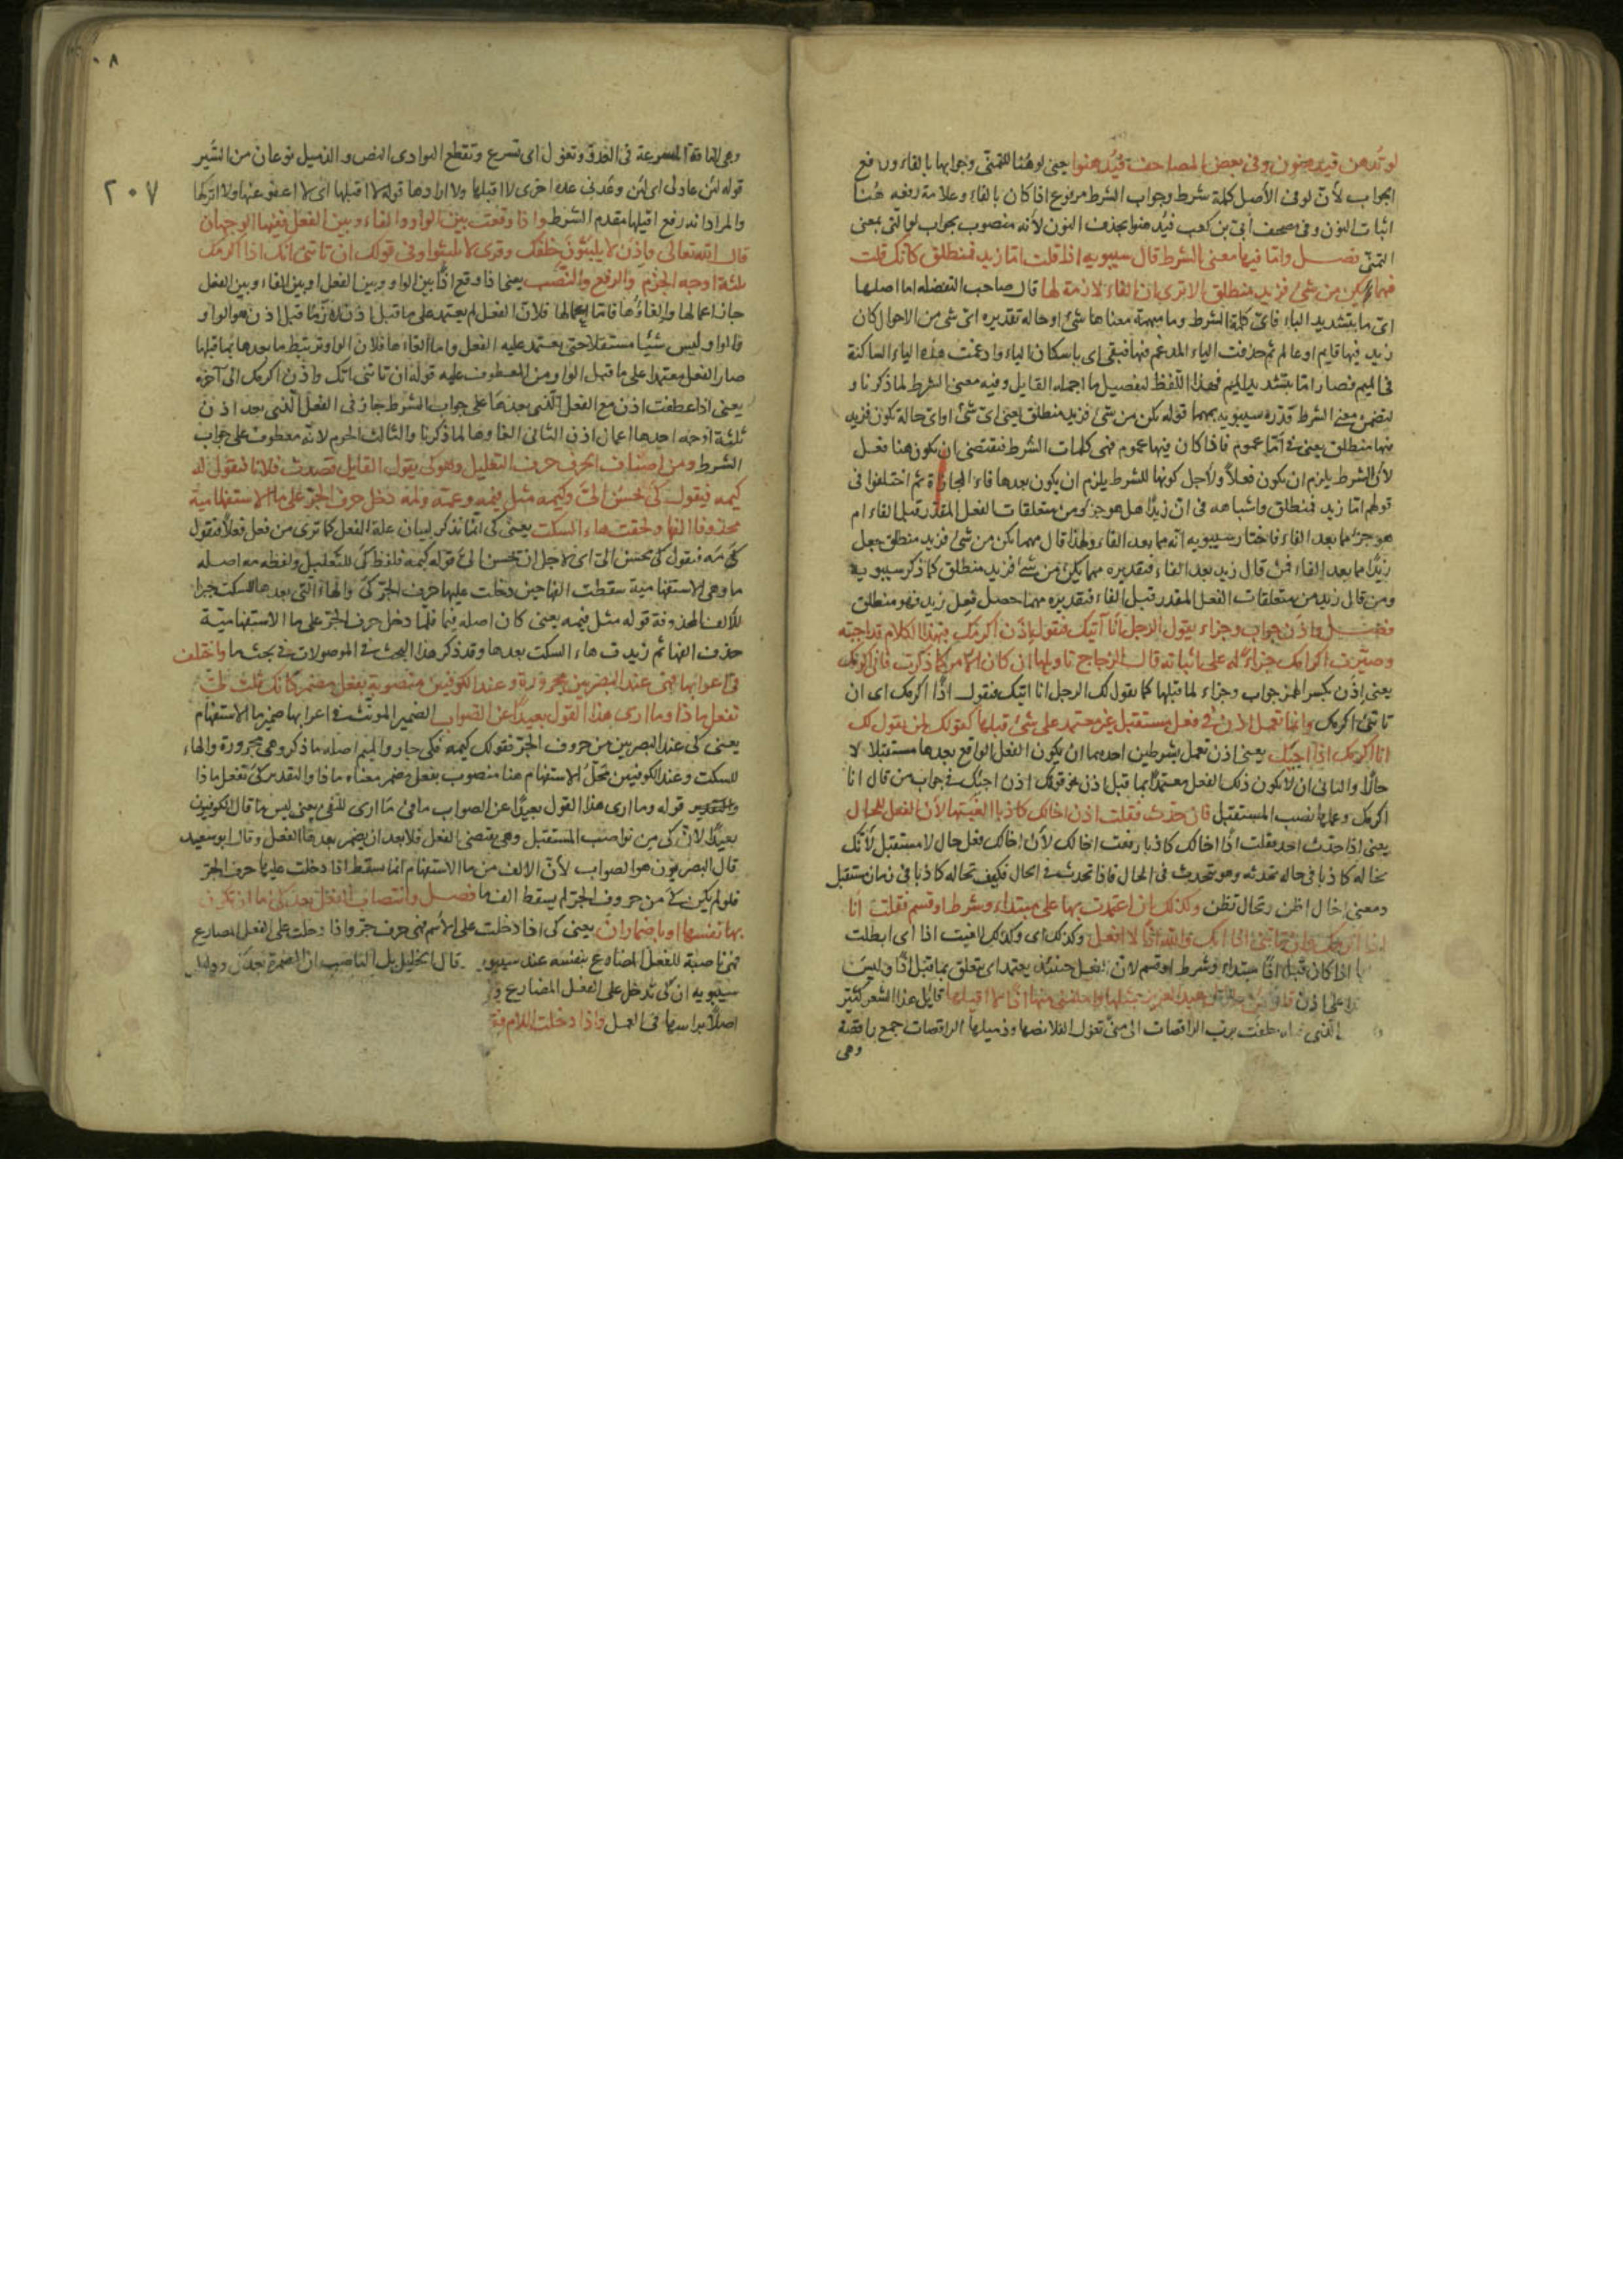 لو تُدهن فيدهنون وفى بعض المصاحف فيُدهنوا يعنى لو هُنا للتمنّى وجوابها بالفاء ورفع
الجواب لأنّ لو فى الأصل كلمة شرط وجواب الشرط مرفوع اذا كان بالفاء وعلامة رفعه هُنا
اثبات النون وفى مصحف اُبىّ بن كعب فيُدهنوا بحذف النون لأنه منصوب بجواب لو التى بمعنى
التمنّى فصل وامّا فيها معنى الشرط قال سيبويه اذا قلت امّا زيد فمنطلق كأنك قلت
مهما يكن من شىء فزيد منطلق الا ترى ان الفاء لازمة لها قال صاحب اما اصلها
اىّ ما بتشديد الياء فاىّ كلمة الشرط وما مبهمة معناها شىء او حالة تقديره اىّ شىء من الاحوال كان
زيد فيها قايم او عالم ثم حذفت الياء المدغم فيها فبقى اى باسكان الياء وادغمت هذه الياء الساكنة
فى الميم فصار امّا بتشديد الميم فهذا اللّفظ لتفصيل ما اجمله القايل وفيه معنى الشرط لما ذكرنا و
لتضمن معنى الشرط قدّره سيبويه بمهما قوله يكن من شىء فزيد منطلق يعنى اىّ شىء او اى حالة تكون فزيد
فيها منطلق يعنى فى امّا عموم فاذا كان فيها عموم فهى كلمات الشرط فيقتضى ان يكون هنا فعل
لأنّ الشرط يلزم ان يكون فعلاً ولأجل كونها للشرط يلزم ان يكون بعدها فاء المجازاة ثم اختلفوا فى
قولهم امّا زيد فمنطلق واشباهه فى انّ زيدًا هل هو جزء من متعلقات الفعل المقدّر قبل الفاء ام
هو جزء مما بعد الفاء فاختار سيبويه انّه مما بعد الفاء ولهذا قال مهما يكن من شىء فزيد منطلق جعل
زيدًا مما بعد الفاء فمن قال زيد بعد الفاء فتقديره مهما يكن من شىء فزيد منطلق كما ذكر سيبويه
ومن قال زيد من متعلقات الفعل المقدر قبل الفاء فتقديره مهما حصل فعل زيد فهو منطلق
فصل واذن جواب وجزاء يقول الرجل انا آتيك فتقول اذن اكرمك فهذا الكلام قد اجبته
وصيّرت اكرامك جزاء له على اتيانه قال الزجاج تاويلها ان كان الامر كما ذكرت فانى اكرمك
يعنى اذن بكسر الهمز جواب وجزاء لما قبلها كما يقول لك الرجل انا اتيك فتقول اذًا اكرمك اى ان
تاتنى اكرمك وانما تعمل اذن فى فعل مستقبل غير معتمد على شىء قبلها كقولك لمن يقول لك
انا اكرمك اذًا اجيئك يعنى اذن تعمل بشرطين احدهما ان يكون الفعل الواقع بعدها مستقبلا لا
حالًا والثانى ان لا يكون ذلك الفعل معتمدًا بما قبل اذن نحو قولك اذن اجيئك فى جواب من قال انا
اكرمك وعملها نصب المستقبل فان حدّث فقلت اذن اخالك كاذبا الغيتها لأن الفعل للحال
يعنى اذا حدّث احد فقلت اذًا اخالك كاذبا رفعت اخالك لأنّ اخالك فعل حال لا مستقبل لأنّك
تخاله كاذبا فى حالة تحدثه وهو يتحدث فى الحال فاذا تحدث فى الحال فكيف تخاله كاذبا فى زمان مستقبل
ومعنى اخال اظن وتخال تظن وكذلك ان اعتمدت بها على مبتداء وشرط او قسم فقلت انا
اذا اكرمك وان تاتنى اذا آتك والله اذًا لا افعل وكذلك اى وكذلك الغيت اذا اى ابطلت
اذا كان قبل اذًا مبتداء وشرط او قسم لانّ الفعل حينئذ يعتمد اى يتعلق بما قبل اذًا وليس
على اذن عبد العزيز بمثلها وامكننى منها اذًا لا اقيلها قايل هذا الشعر كثيّر
حلفت بربّ الراقصات الى منىً تغول الفلا نصّها وذميلها الراقصات جمع راقصة
وهى
٢٠٧
وهى الناقة المسرعة فى العدو وتغول اى تسرع وتقطع البوادى النص والذميل نوعان من السَّير
قوله لئن عاد لى اى لئن وعدنى عدة اخرى لا اقبلها ولا اردها قوله لا اقيلها اى لا اعفو عنها ولا اتركها
والمراد انه رفع اقيلها مقدم الشرط واذا وقعت بين الواو والفاء وبين الفعل ففيها الوجهان
قال الله تعالى واذن لا يلبثون خلفك وقرئ لا يلبثوا وفى قولك ان تاتنى آتك اذًا اكرمك
ثلثة اوجه الجزم والرفع والنصب يعنى اذا وقع اذًا بين الواو وبين الفعل او بين الفاء وبين الفعل
جاز اعمالها والغاؤها فامّا اعمالها فلانّ الفعل لم يعتمد على ما قبل اذن لانّ ما قبل اذن هو الواو
والواو ليس شيئا مستقلا حتى يعتمد عليه الفعل واما الغاءها فلانّ الواو تربط ما بعدها بما قبلها
صار الفعل معتمدا على ما قبل الواو من المعطوف عليه قوله ان تاتنى اتك واذن اكرمك الى آخره
يعنى اذا عطفت اذن مع الفعل الّذى بعدها على جواب الشرط جاز فى الفعل الّذى بعد اذن
ثلثة اوجه احدها اعمال اذن الثانى الغاوها لما ذكرنا والثالث الجزم لانّه معطوف على جواب
الشرط ومن اصناف الحرف حرف التعليل وهو كى يقول القايل قصدت فلانا فتقول له
كيمه فيقول كى يُحسن الىّ وكيمه مثل فيمه وعمّه ولمه دخل حرف الجرّ على ما الاستفهامية
محذوفا الفها ولحقت هاء السكت يعنى كى انما تذكر لبيان علة الفعل كما ترى من فعل فعلاً فتقول
كى مه فيقول كى يحسن الىّ اى لاجل ان يحسن الىّ قوله كيمه فلفظ كى للتعليل ولفظه مه اصله
ما وهى الاستفهامية سقطت الفها حين دخلت عليها حرف الجرّ كى والهاء الّتى بعدها للسكت جبرا
للألف المحذوفة قوله مثل فيمه يعنى كان اصله فيما فلمّا دخل حرف الجرّ على ما الاستفهاميّة
حذف الفها ثم زيدت هاء السكت بعدها وقد ذكر هذا البحث فى الموصولات فى بحث ما واختلف
فى اعرابها فهى عند البصريين مجرورة وعند الكوفيين منصوبة بفعل مضمر كانك قلت كى
تفعل ماذا وما ارى هذا القول بعيدًا عن الصواب الضمير المونّث فى اعرابها ضمير ما الاستفهام
يعنى كى عند البصريين من حروف الجرّ فقولك كيمه فكى جار والميم اصله ما ذكر وهى مجرورة والهاء
للسكت وعند الكوفيين محلّ الاستفهام هنا منصوب بفعل مضمر معناه ماذا والتقدير كى تفعل ماذا
قوله وما ارى هذا القول بعيدًا عن الصواب ما فى ما ارى للنفى يعنى ليس ما قال الكوفيون
بعيدًا لانّ كى من نواصب المستقبل وهى يقتضى الفعل فلا بد ان يضمر بعدها الفعل وقال ابو سعيد
قال البصريون هو الصواب لأنّ الالف من ما الاستفهام انما يسقط اذا دخلت عليها حرف الجرّ
فلو لم يكن كى من حروف الجرّ لم يسقط الف ما فصل وانتصاب الفعل بعد كى اما ان يكون
بها نفسها او باضمار ان يعنى كى اذا دخلت على الاسم فهى حرف جرّ واذا دخلت على الفعل المضارع
فهى ناصبة للفعل المضارع بنفسه عند سيبويه قال الخليل بل الناصب ان المضمرة بعد كى ودليل
سيبويه ان كى تدخل على الفعل المضارع
اصلاً براسها فى العمل واذا دخلت اللام